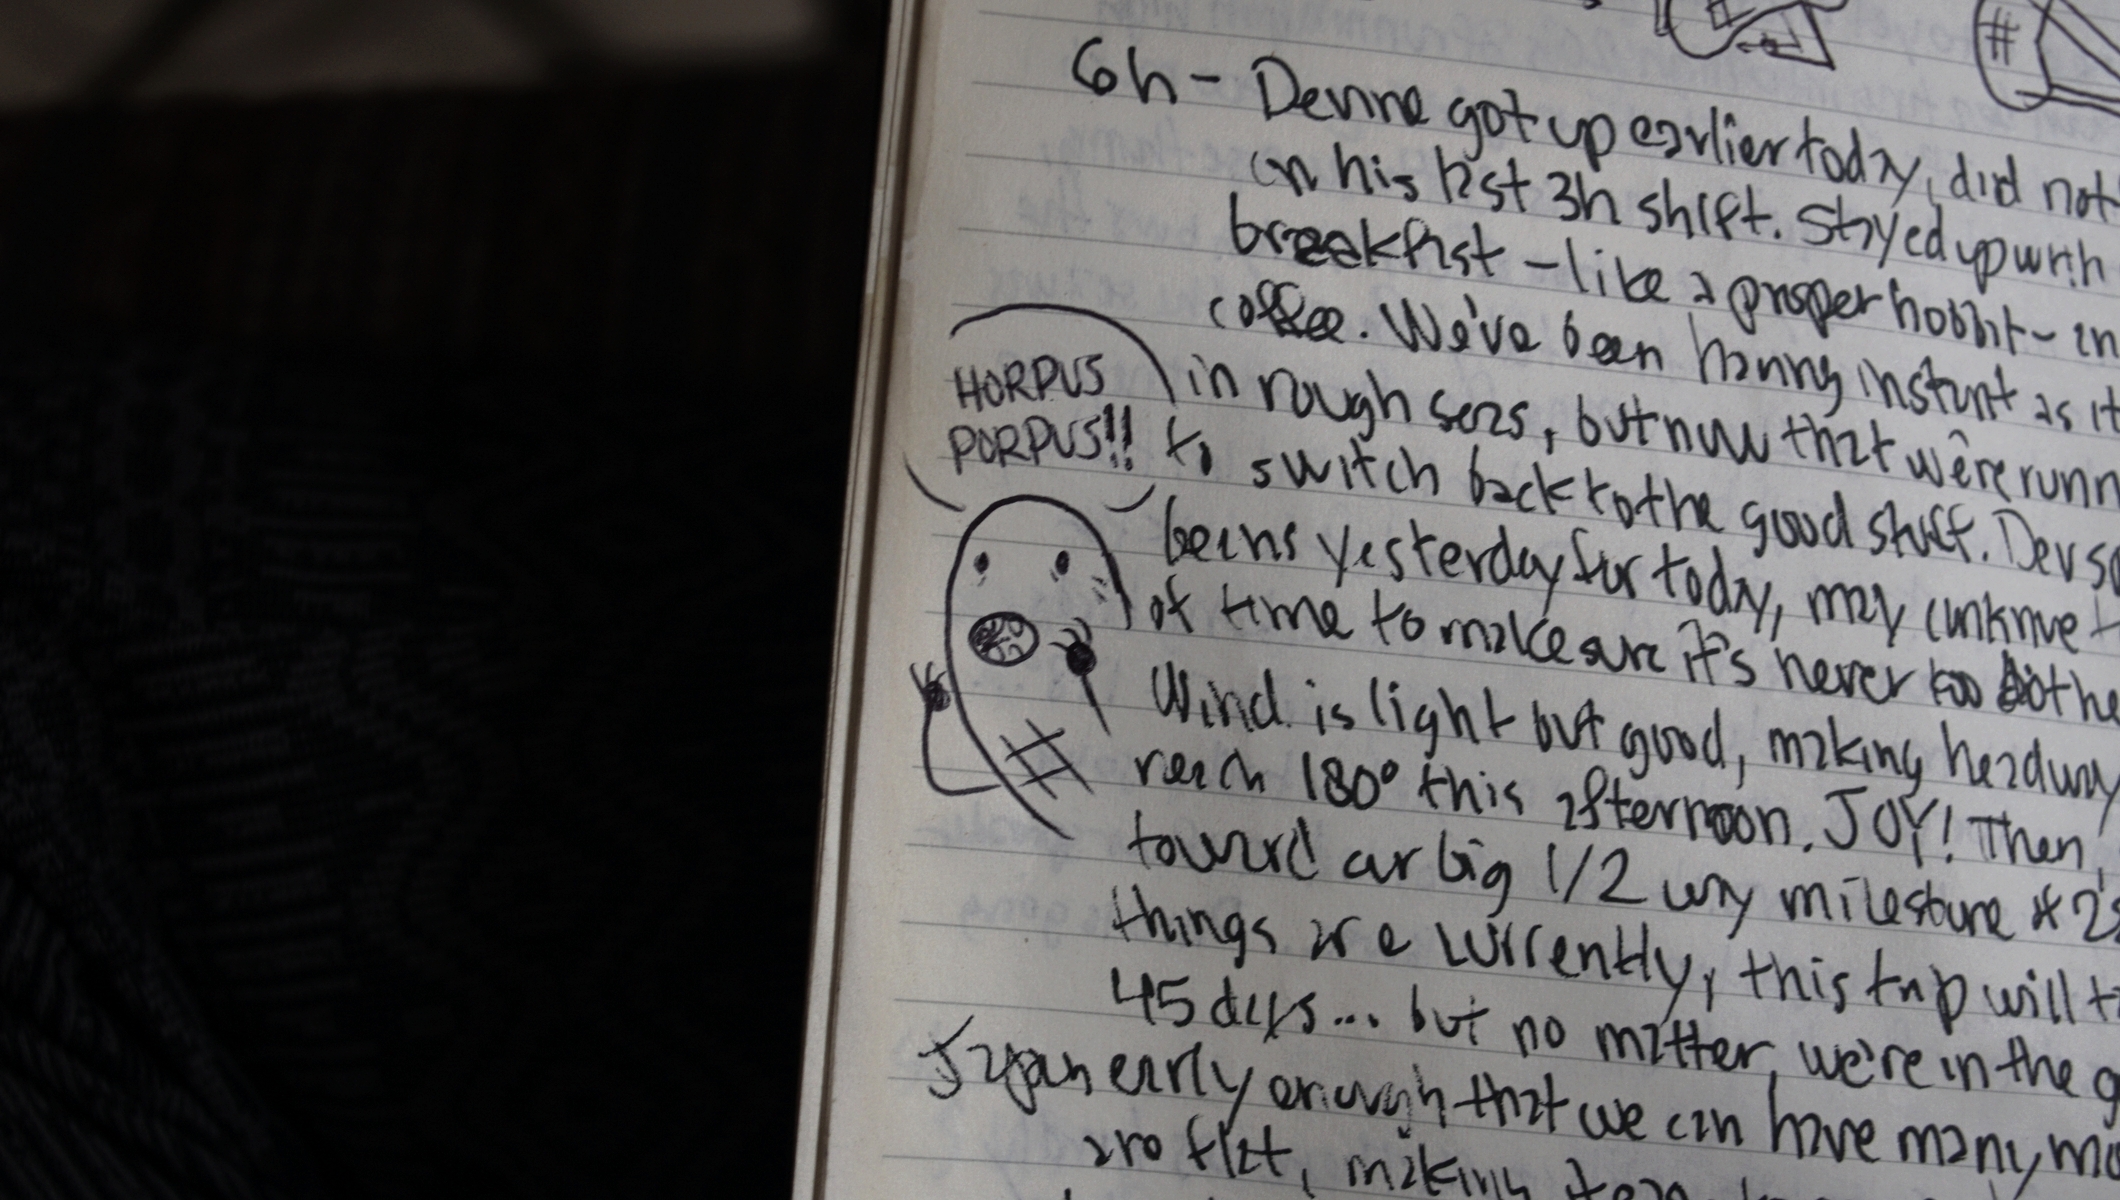 #
6h - Devine got up earlier today, did not
on his last 3h shift. Stayed up with
breakfast - like a proper hobbit - in
coffee. We've been having instant as it
HORPUS
PORPUS!!
in rough seas, but now that we're runn
to switch back to the good stuff. Dev
beans yesterday for today, may
of time to make sure it's never too
Wind is light but good, making headway
reach 180° this afternoon. JOY! Then,
toward our big 1/2 way milestone
things are currently, this trip will t
45 days... but no matter, we're in the g
Japan early enough that we can have many mo
are flat, making